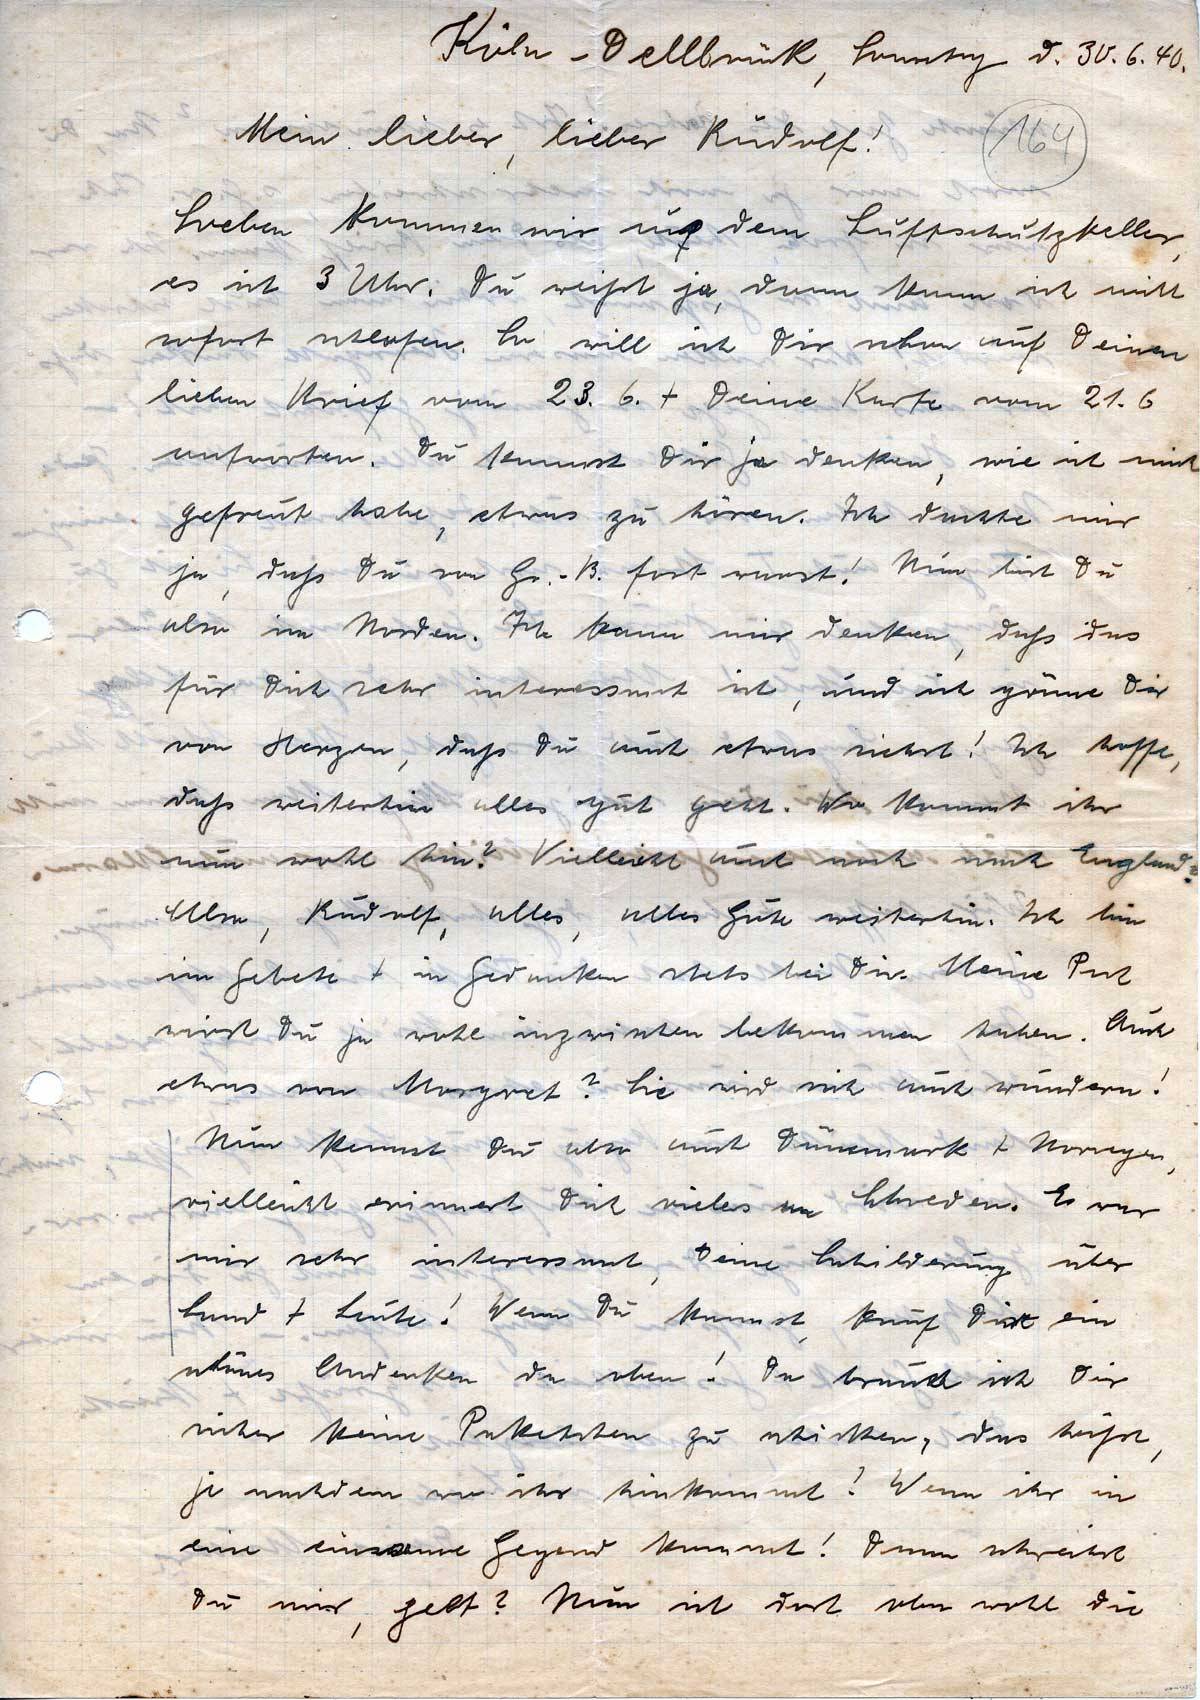 Köln-Dellbrück, Sonntag d. 30.6.40.
164
Mein lieber, lieber Rudolf!
Soeben kommen wir aus dem Luftschutzkeller,
es ist 3 Uhr. Du weißt ja, dann kann ich nicht
sofort schlafen. So will ich Dir schon auf Deinen
lieben Brief vom 23.6. + Deine Karte vom 21.6
antworten. Du kannst Dir ja denken, wie ich mich
gefreut habe, etwas zu hören. Ich dachte mir
ja, daß Du von Gr.-B. fort warst! Nun bist Du
also im Norden. Ich kann mir denken, daß das
für Dich sehr interessant ist, und ich gönne Dir
von Herzen, daß Du auch etwas siehst! Ich hoffe,
daß weiterhin alles gut geht. Wo kommt ihr
nun wohl hin? Vielleicht auch noch nach England?
Also, Rudolf, alles, alles Gute weiterhin. Ich bin
im Gebete + in Gedanken stets bei Dir. Meine Post
wirst Du ja wohl inzwischen bekommen haben. Auch
etwas von Margret? Sie wird sich auch wundern!
Nun kennst Du also auch Dänemark + Norwegen,
vielleicht erinnert Dich vieles an Schweden. Es war
mir sehr interessant, Deine Schilderung über
Land + Leute! Wenn Du kannst, kauf Dir ein
schönes Andenken da oben! Da brauch ich Dir
sicher keine Paketchen zu schicken, das heißt,
je nachdem wo ihr hinkommt? Wenn ihr in
eine einsame Gegend kommt! Dann schreibst
Du mir, gelt? Nun ist dort oben wohl die